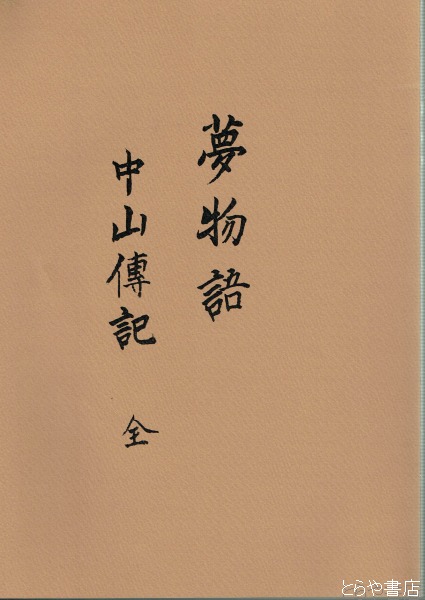 夢物語
中山傳記 全
とらや書店